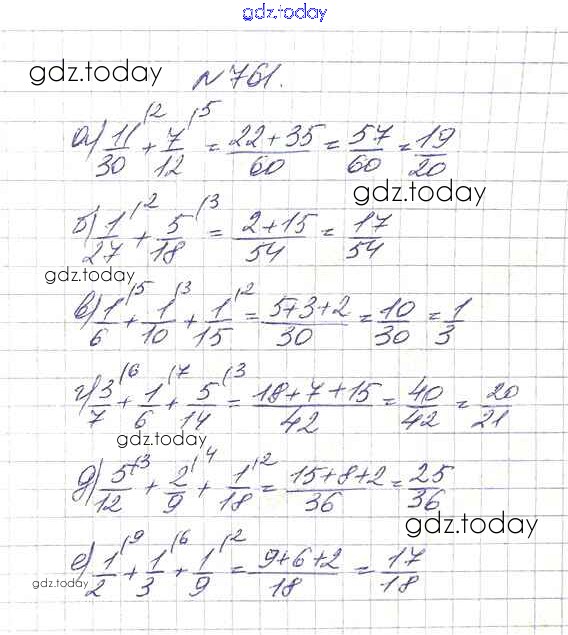 gdz.today
gdz.today
№761.
а) 11/30 |2 + 7/12 |5 = 22+35/60 = 57/60 = 19/20
gdz.today
б) 1/27 |2 + 5/18 |3 = 2+15/54 = 17/54
gdz.today
в) 1/6 |5 + 1/10 |3 + 1/15 |2 = 5+3+2/30 = 10/30 = 1/3
г) 3/7 |6 + 1/6 |7 + 5/14 |3 = 18+7+15/42 = 40/42 = 20/21
gdz.today
д) 5/12 |3 + 2/9 |4 + 1/18 |2 = 15+8+2/36 = 25/36
gdz.today
е) 1/2 |9 + 1/3 |6 + 1/9 |2 = 9+6+2/18 = 17/18
gdz.today